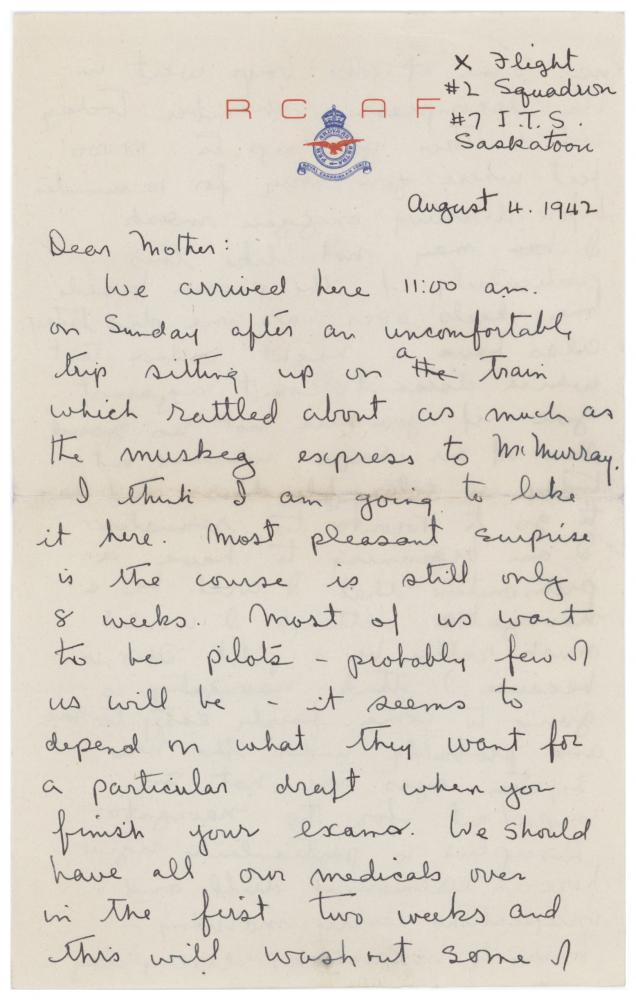 X Flight
#2 Squadron
R C A F
#7 I.T.S.
Saskatoon
ROYAL CANADIAN AIR FORCE
August 4. 1942
Dear Mother:
We arrived here 11:00 am.
on Sunday after an uncomfortable
trip sitting up on a the train
which rattled about as much as
the muskeg express to McMurray.
I think I am going to like
it here. Most pleasant surprise
is the course is still only
8 weeks. Most of us want
to be pilots - probably few of
us will be - it seems to
depend on what they want for
a particular draft when you
finish your exams. We should
have all our medicals over
in the first two weeks and
this will wash out some of